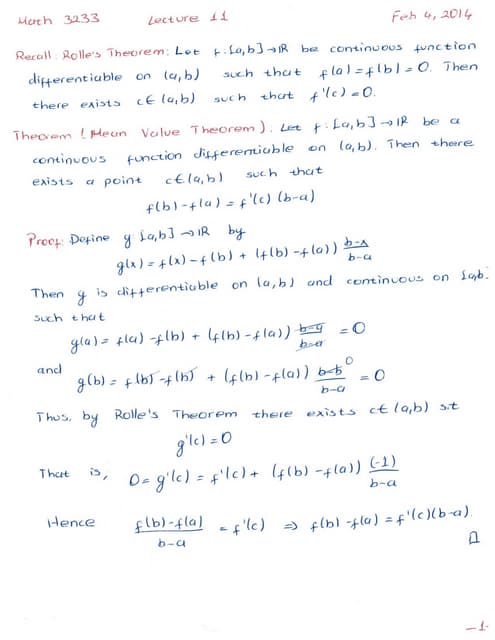 Math 3233 Lecture 11 Feb 4, 2014
Recall: Rolle's Theorem: Let f: [a,b] → ℝ be continuous function
differentiable on (a,b) such that f(a) = f(b) = 0. Then
there exists c ∈ (a,b) such that f'(c) = 0.
Theorem (Mean Value Theorem): Let f: [a,b] → ℝ be a
continuous function differentiable on (a,b). Then there
exists a point c ∈ (a,b) such that
f(b) - f(a) = f'(c) (b-a)
Proof: Define g: [a,b] → ℝ by
g(x) = f(x) - f(b) + (f(b) - f(a)) (b-x)/(b-a)
Then g is differentiable on (a,b) and continuous on [a,b].
such that
g(a) = f(a) - f(b) + (f(b) - f(a)) (b-a)/(b-a) = 0
and
g(b) = f(b) - f(b) + (f(b) - f(a)) (b-b)/(b-a) 0 = 0
Thus, by Rolle's Theorem there exists c ∈ (a,b) s.t
g'(c) = 0
That is, 0 = g'(c) = f'(c) + (f(b) - f(a)) (-1)/(b-a)
Hence (f(b) - f(a))/(b-a) = f'(c) ⇒ f(b) - f(a) = f'(c)(b-a)
□
-1-